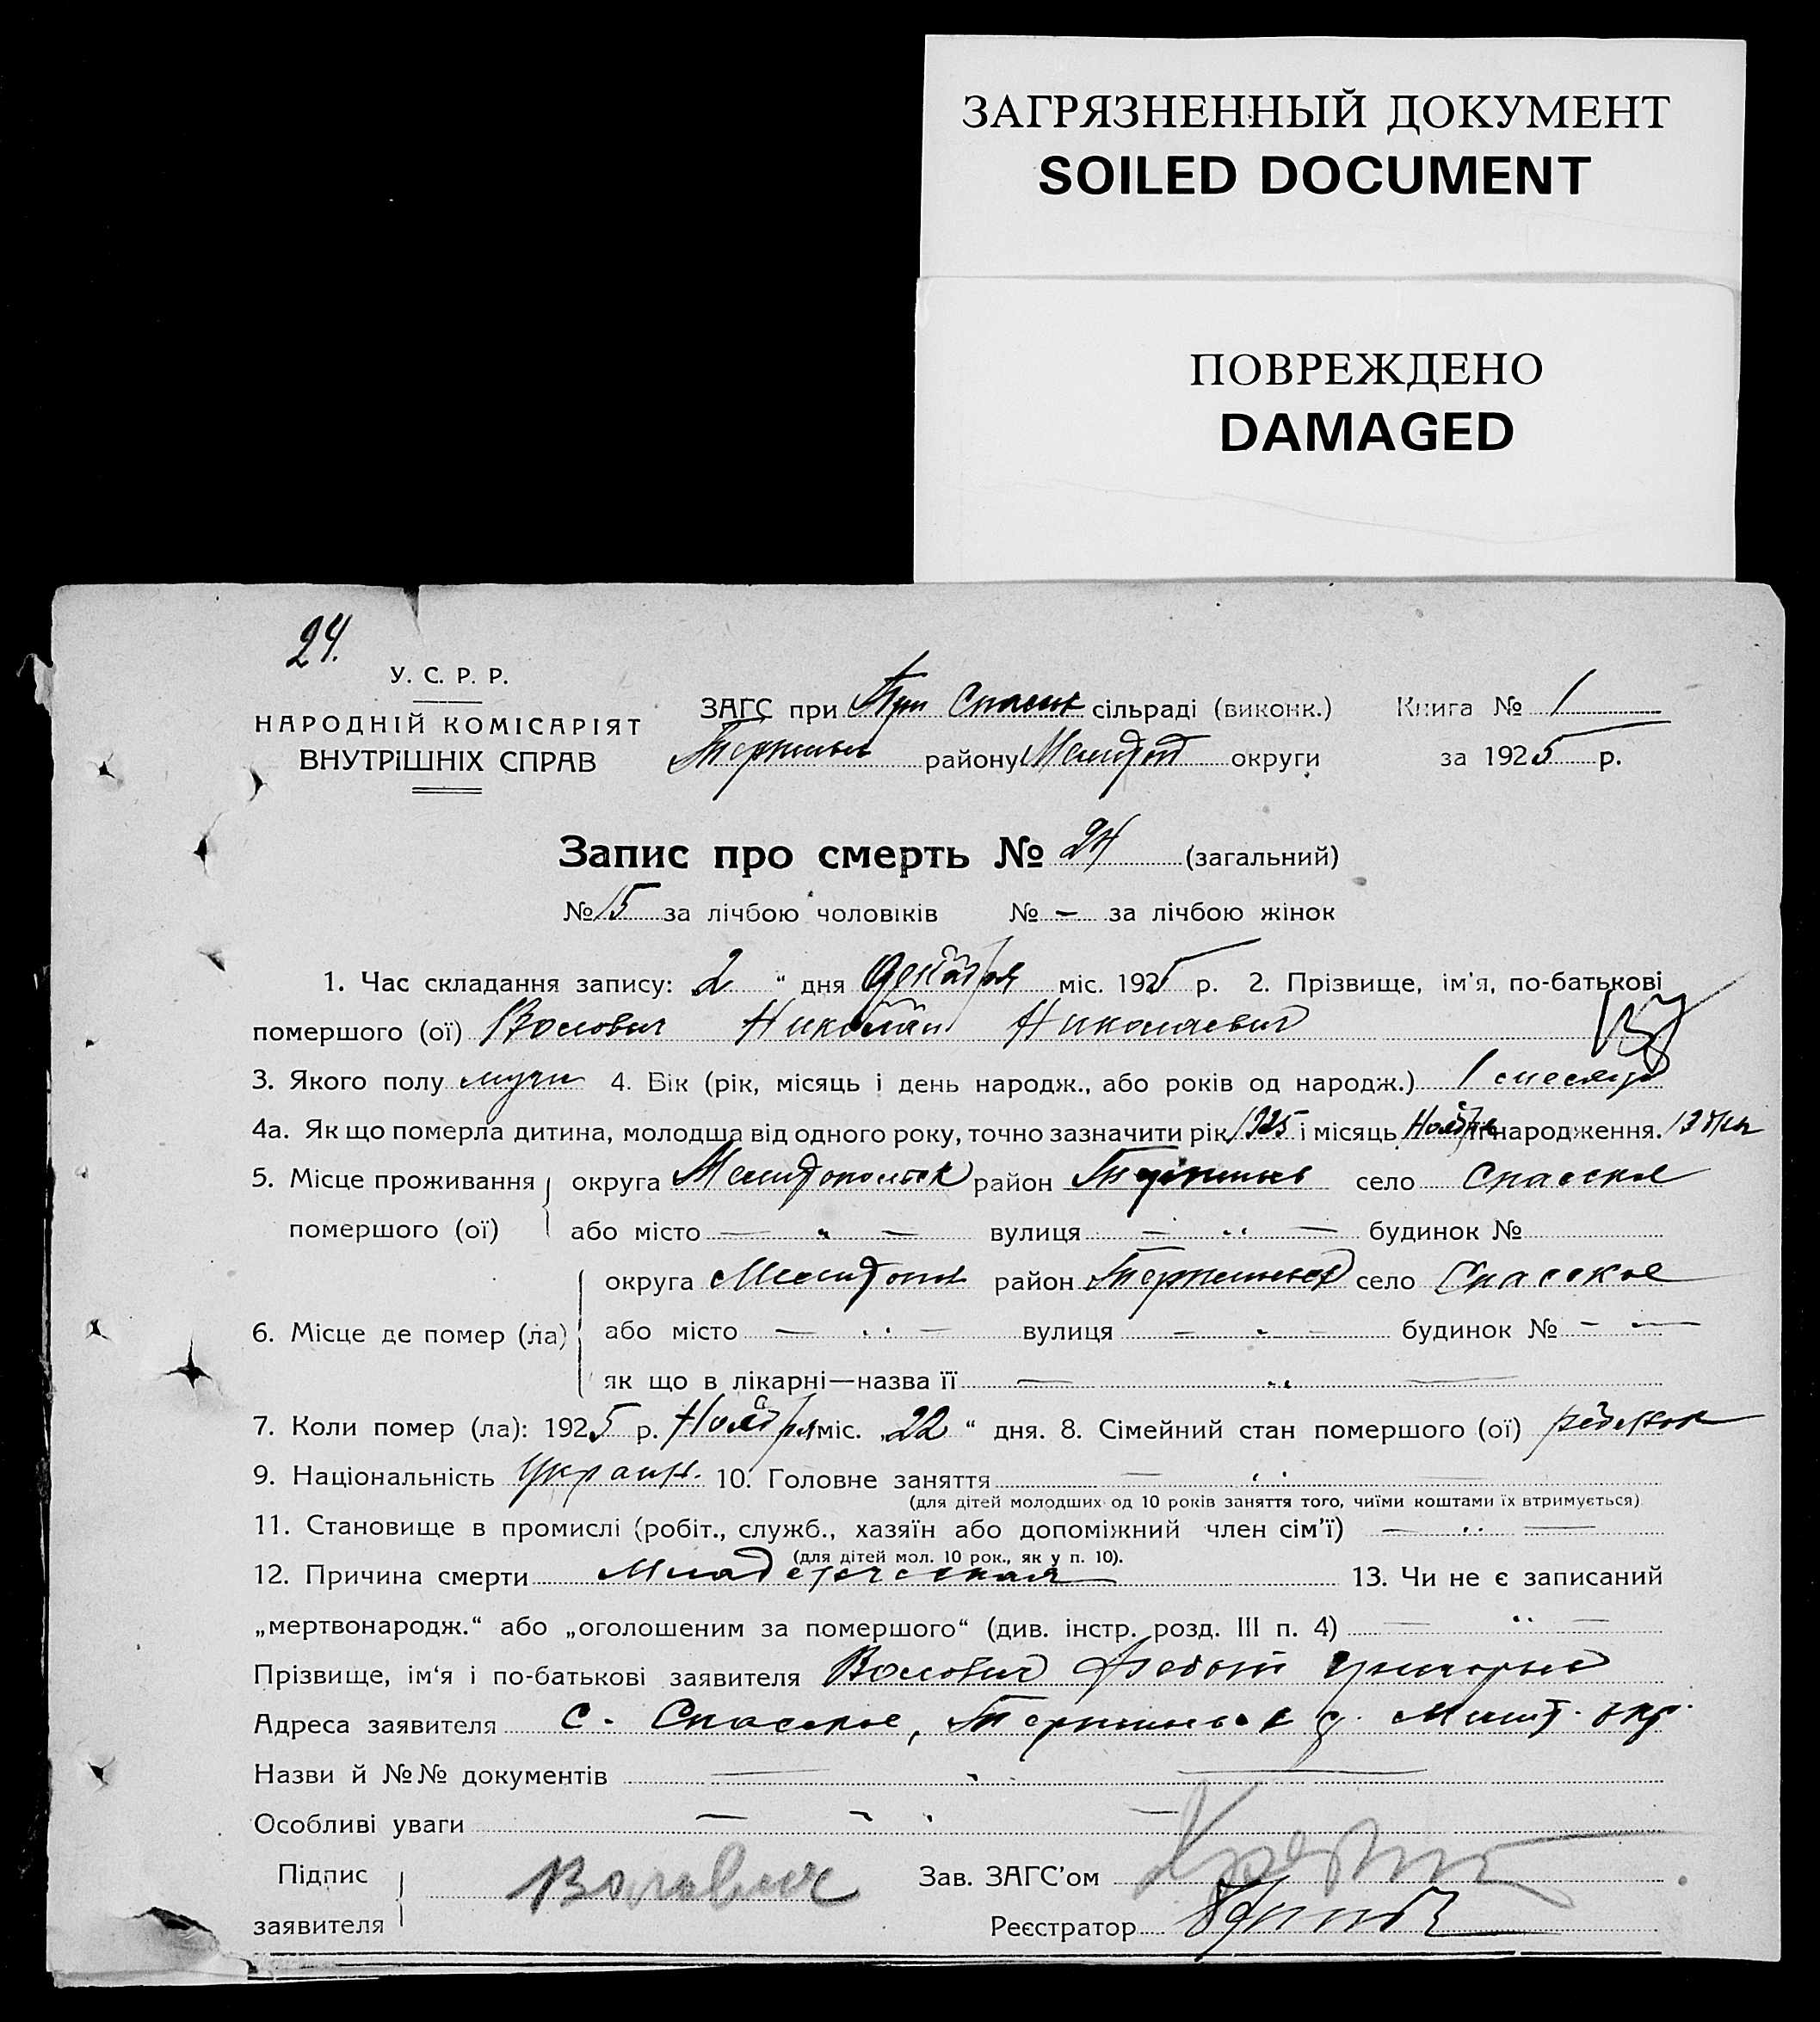 ЗАГРЯЗНЕННЫЙ ДОКУМЕНТ
SOILED DOCUMENT
ПОВРЕЖДЕНО
DAMAGED
24.
У. С. Р. Р.
НАРОДНІЙ КОМІСАРІЯТ
ВНУТРІШНІХ СПРАВ
ЗАГС при При Спаськ сільраді (виконк.) Книга № 1
району Мелитоп округи за 1925 р.
Запис про смерть № 24 (загальний)
№ 15 за лічбою чоловіків № — за лічбою жінок
1. Час складання запису: 2 “ дня Декабря міс. 1925 р. 2. Прізвище, ім'я, по-батькові
помершого (ої) Волович Николай Николаевич
3. Якого полу мужч 4. Вік (рік, місяць і день народж., або років од народж.) 1 месяц
4а. Як що померла дитина, молодша від одного року, точно зазначити рік 1925 і місяць Ноябрь народження.
5. Місце проживання округа Мелитопольск район село Спасское
помершого (ої) або місто — „ — вулиця — „ — будинок №
округа Мелитоп район село Спасское
6. Місце де помер (ла) або місто — „ — вулиця — „ — будинок № — —
як що в лікарні—назва її — „ —
7. Коли помер (ла): 1925 р. Ноября міс. „22 “ дня. 8. Сімейний стан помершого (ої) ребенок
9. Національність Украин. 10. Головне заняття — „ —
(для дітей молодших од 10 років заняття того, чиїми коштами їх втримується)
11. Становище в промислі (робіт., служб., хазяїн або допоміжний член сім'ї) — „ —
(для дітей мол. 10 рок., як у п. 10).
12. Причина смерти Младенческая 13. Чи не є записаний
„мертвонародж.“ або „оголошеним за помершого“ (див. інстр. розд. III п. 4) — „ —
Прізвище, ім'я і по-батькові заявителя Волович Федот
Адреса заявителя с. Спасское, р. Мелит. окр.
Назви й №№ документів — „ —
Особливі уваги — „ —
Підпис
заявителя Волович Зав. ЗАГС'ом
Реєстратор